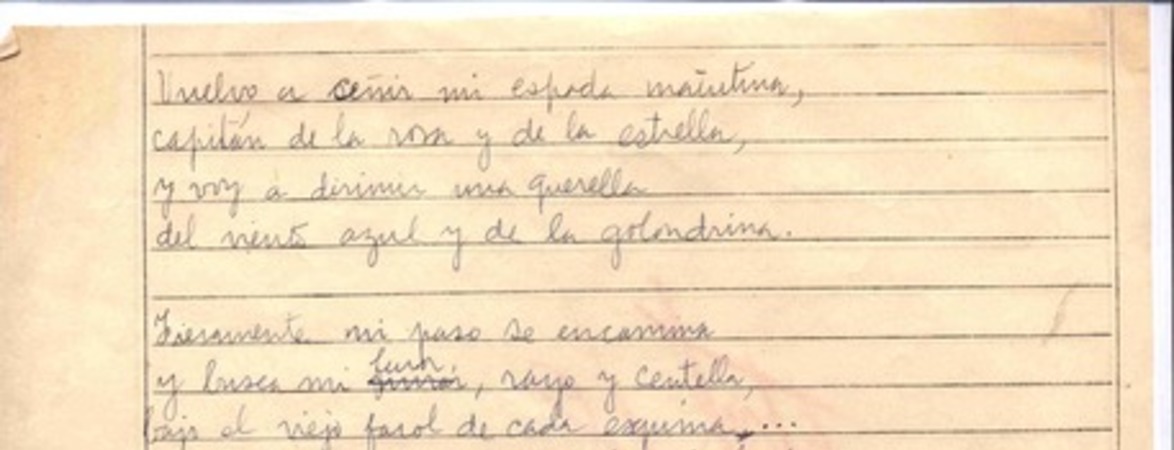 Vuelvo a ceñir mi espada matutina,
capitán de la rosa y de la estrella,
y voy a dirimir una querella
del viento azul y de la golondrina.
Fieramente mi paso se encamina
furor,
y busca mi, rayo y centella,
bajo el viejo farol de cada esquina...